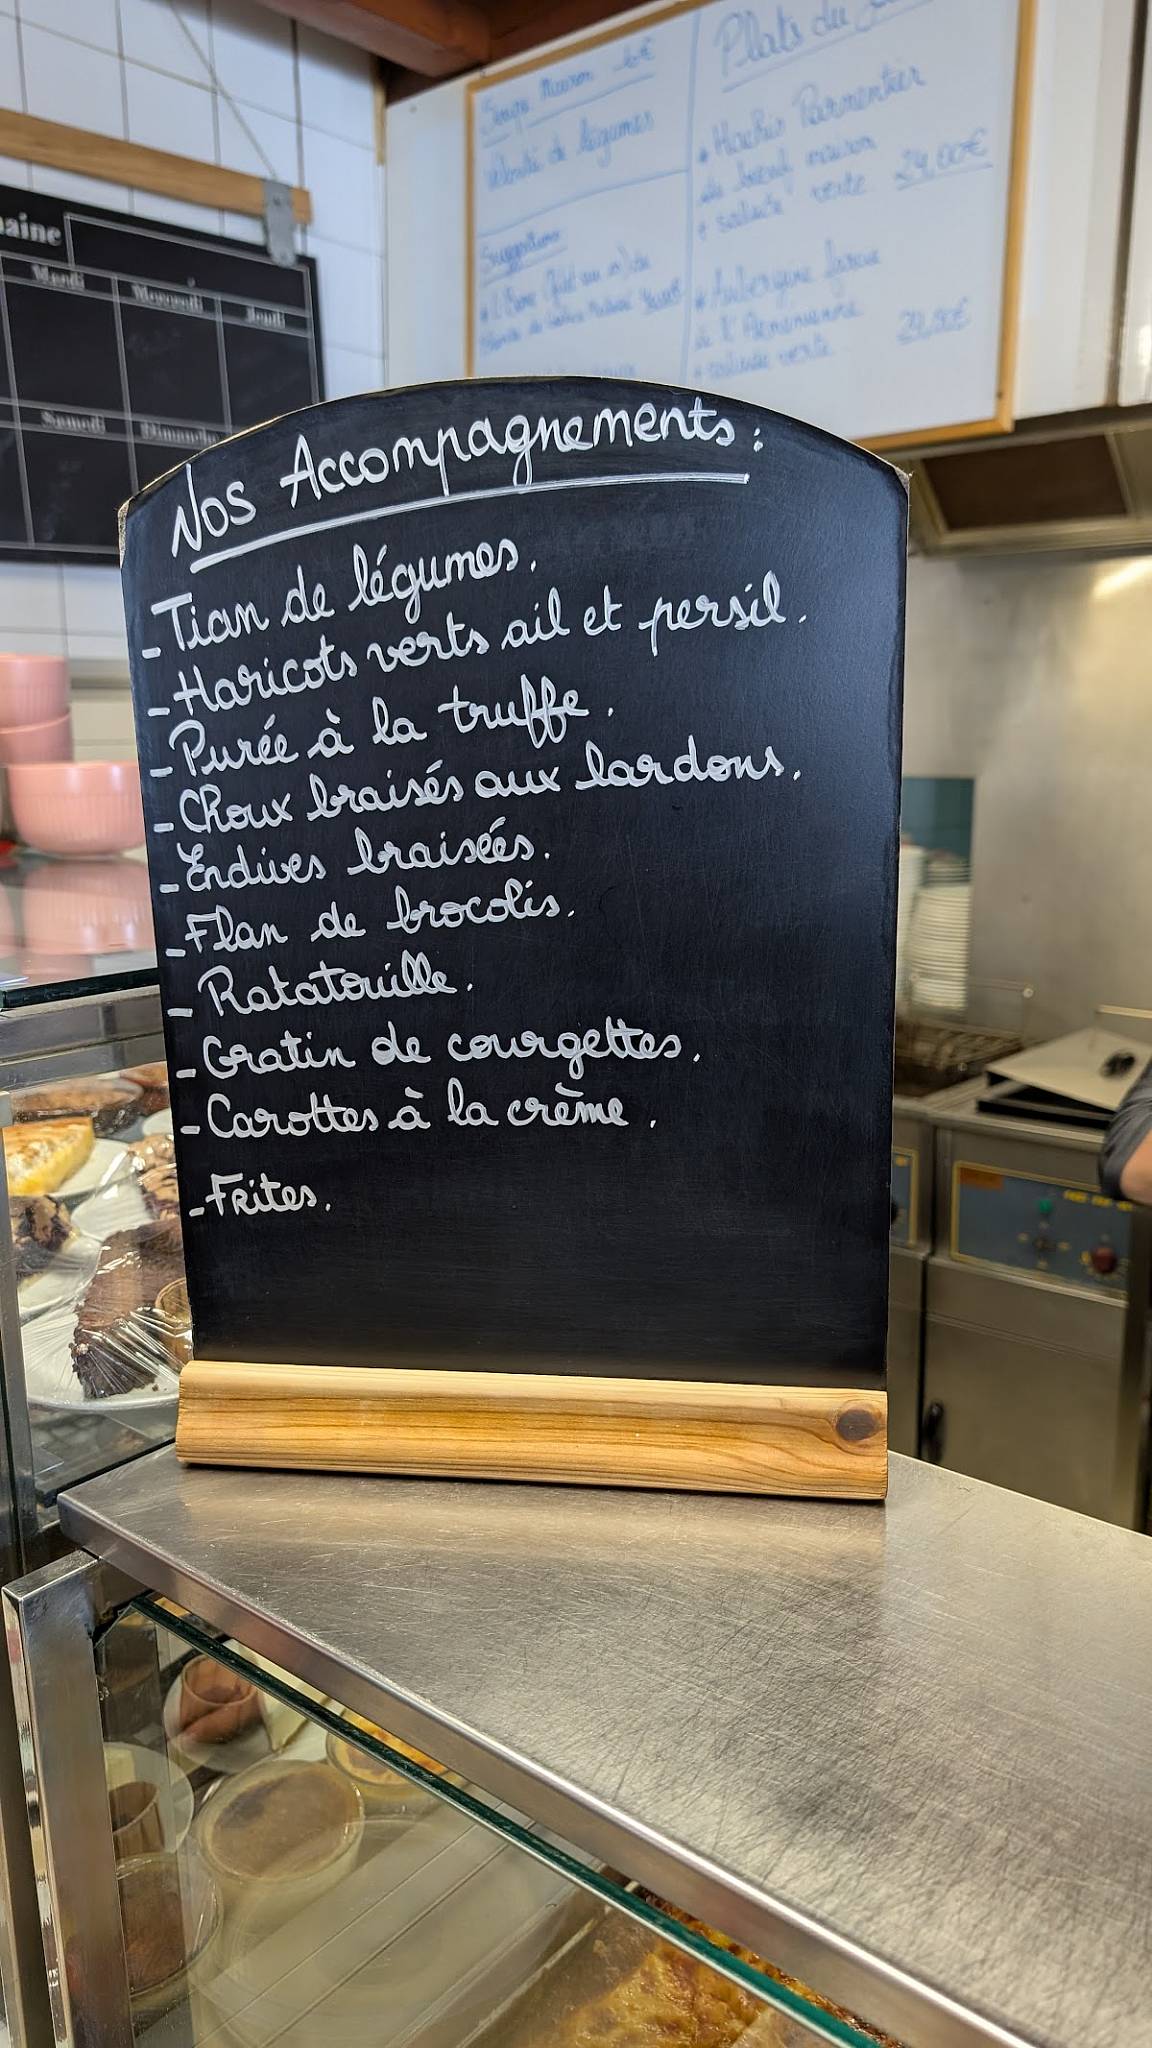 aine
Mardi
Mercredi
Jeudi
Samedi
Dimanche
Maison
Velouté de légumes
Suggestion
Plats du
* Hachis Parmentier
de boeuf maison
+ salade verte 24,00€
* Aubergine farcie
à l'Arménienne
+ salade verte
Nos Accompagnements :
- Tian de légumes.
- Haricots verts ail et persil.
- Purée à la truffe.
- Choux braisés aux lardons.
- Endives braisées.
- Flan de brocolis.
- Ratatouille.
- Gratin de courgettes.
- Carottes à la crème.
- Frites.